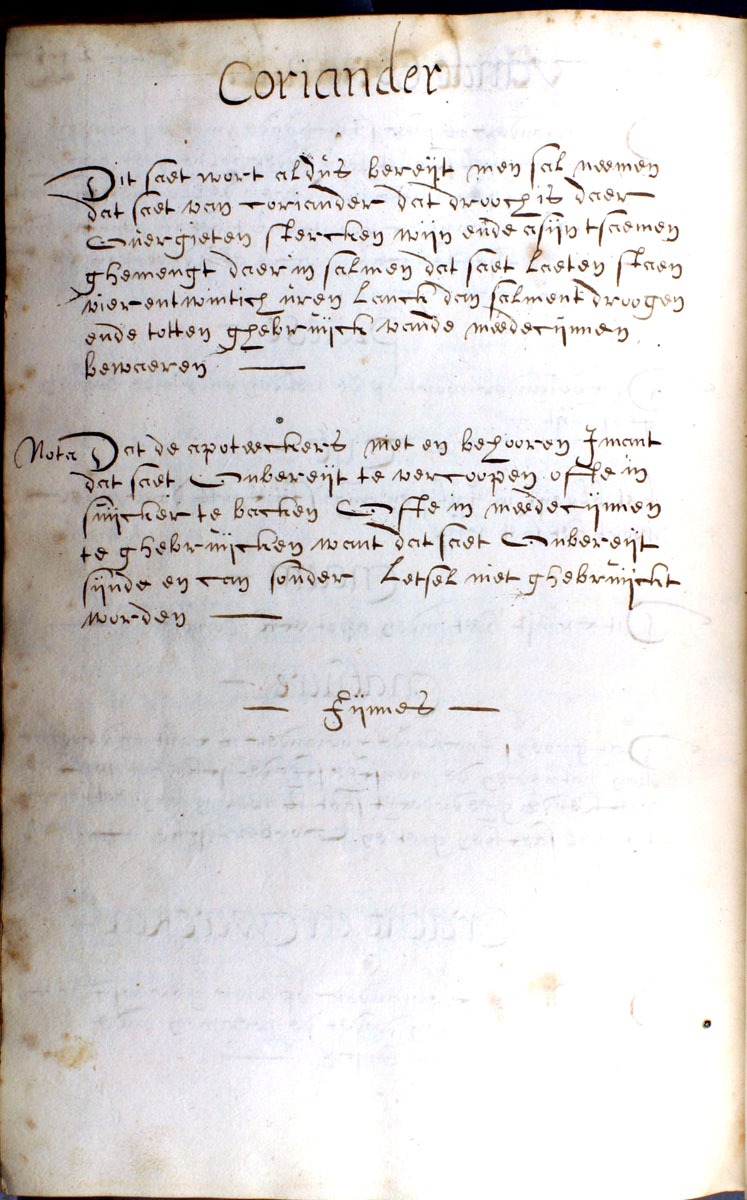 Coriander
Dit saet wort aldus bereijt men sal neemen
dat saet van coriander dat drooch is daer
Overgieten stercken wijn ende asijn tsaemen
ghemengt daer in salmen dat saet laeten staen
vierentwintich uren lanck dan salment droogen
ende totten ghebruijck vande medecijnnen
bewaeren
Nota Dat de apoteeckers niet en behooren Imant
dat saet Onbereijt te vercoopen ofte in
suijcker te backen Ofte in medecijnnen
te ghebruijcken want dat saet Onbereijt
sijnde en can sonder letsel niet ghebruijckt
worden
Fijnnes